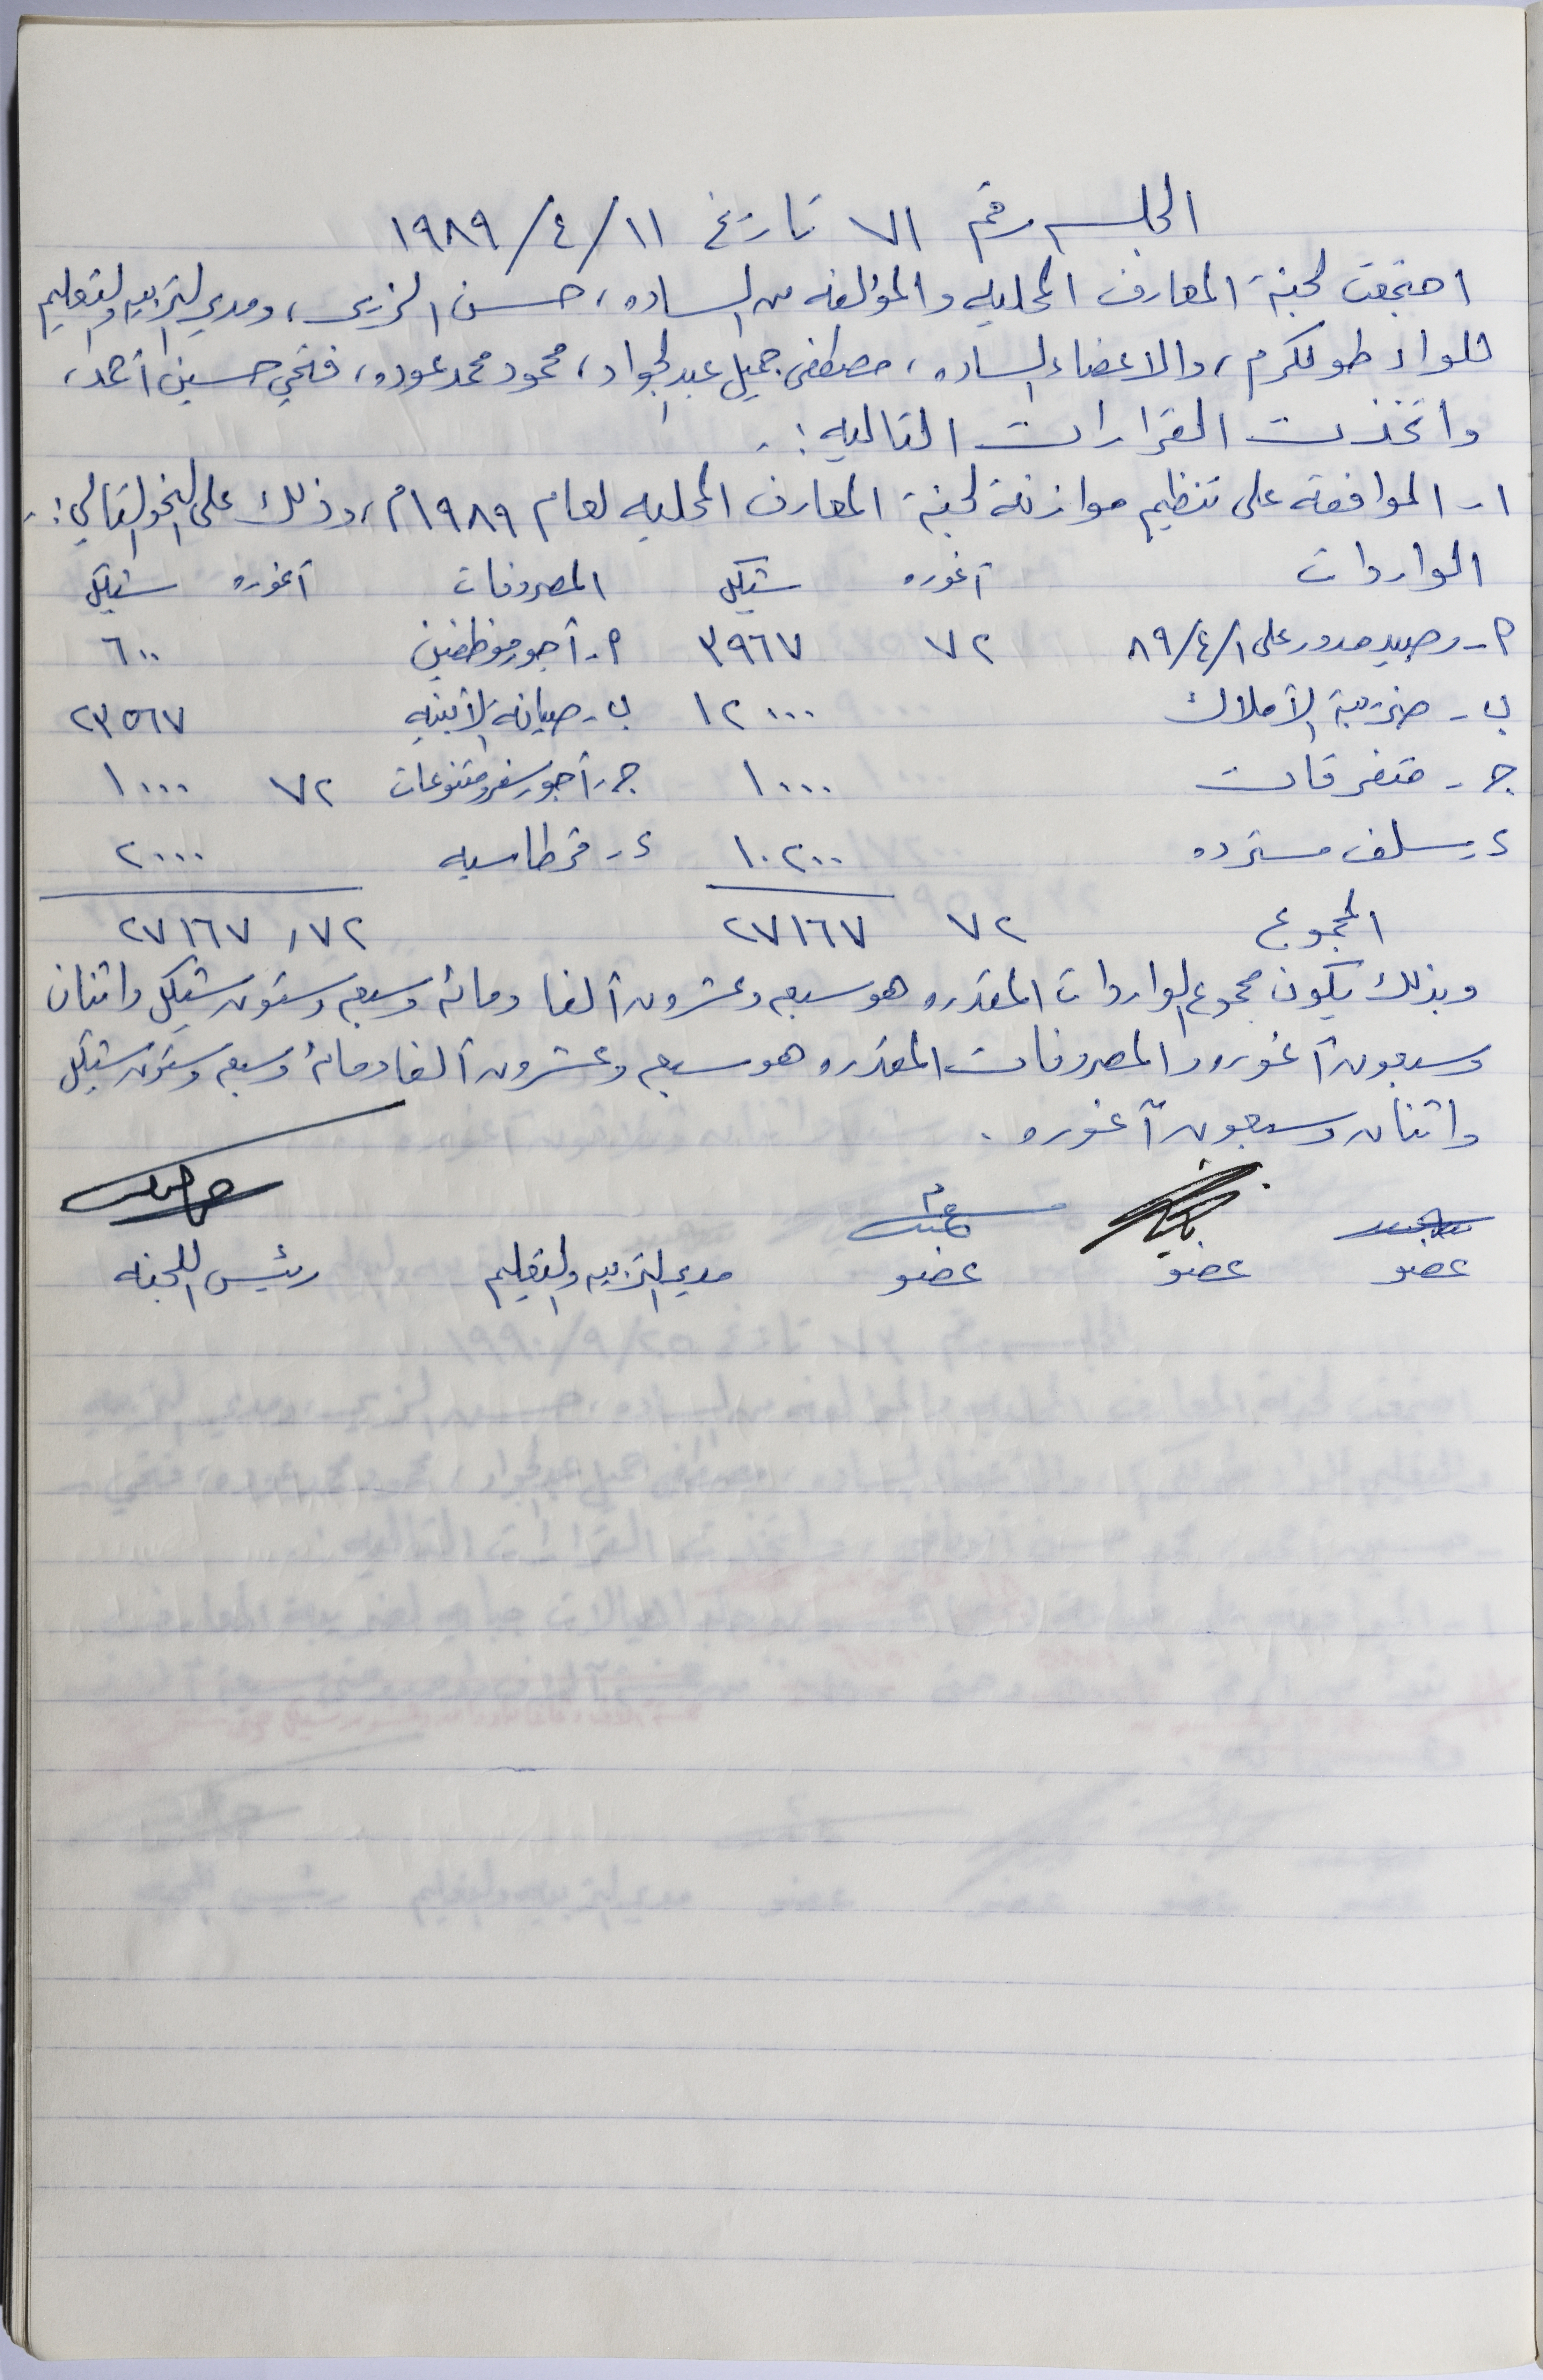 الجلسه رقم ٧١ تاريخ ١١/٤/١٩٨٩
اجتمعت لجنة المعارف المحليه والمؤلفه من الساده، حسن الزير، ومدير التربيه والتعليم
للواء طولكرم، والاعضاء الساده، مصطفى جميل عبد الجواد، محمود محمد عوده، فتحي حسين أحمد،
واتخذت القرارات التاليه:.
١- الموافقة على تنظيم موازنة لجنة المعارف المحليه لعام ١٩٨٩م، وذلك على النحو التالي:.
الواردات آغوره شيكل المصروفات آغوره شيكل
٢- رصيد مدور على ٨٩/٤/١ ٧٢ ٣٩٦٧ ٢- أجور موظفين ٦٠٠
ب- ضريبة الأملاك ١٢٠٠٠ ب- صيانة الأبنيه ٢٣٥٦٧
ج- متفرقات ١٠٠٠ ج- أجور سفر ومتنوعات ٧٢ ١٠٠٠
د- سلف مسترده ١٠٢٠٠ د- قرطاسيه ٢٠٠٠
المجموع ٧٢ ٢٧١٦٧ ٢٧١٦٧,٧٢
وبذلك يكون مجموع الواردات المقدره هو سبعه وعشرون ألفا ومائه وسبعه وستون شيكل واثنان
وسبعون آغوره والمصروفات المقدره هو سبعه وعشرون ألفا ومائه وسبعه وستون شيكل
واثنان وسبعون آغوره.
عضو عضو عضو مدير التربيه والتعليم رئيس اللجنه